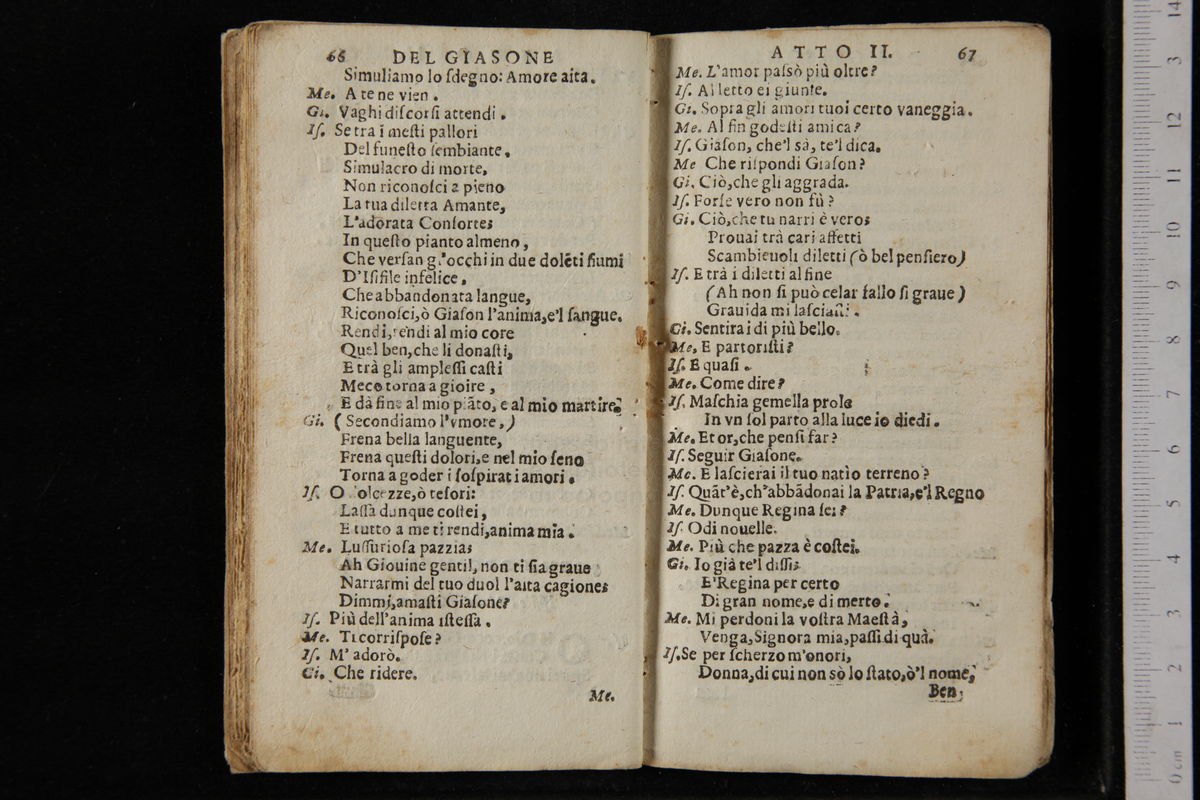 66 DEL GIASONE
Simuliamo lo ſdegno: Amore aita.
Me. A te ne vien.
Gi. Vaghi diſcorſi attendi.
Iſ. Se tra i meſti pallori
Del funeſto ſembiante,
Simulacro di morte,
Non riconoſci a pieno
La tua diletta Amante,
L'adorata Conſorte;
In queſto pianto almeno,
Che verſan gl'occhi in due dolẽti fiumi
D'Iſifile infelice,
Che abbandonata langue,
Riconoſci, ò Giaſon l'anima, e'l ſangue.
Rendi, rendi al mio core
Quel ben, che li donaſti,
E trà gli ampleſſi caſti
Meco torna a gioire,
E dà fine al mio piãto, e al mio martire.
Gi. (Secondiamo l'vmore,)
Frena bella languente,
Frena queſti dolori, e nel mio ſeno
Torna a goder i ſoſpirati amori.
Iſ. O olcezze, ò teſori:
Laſſa dunque coſtei,
E tutto a me ti rendi, anima mia.
Me. Luſſurioſa pazzia;
Ah Giouine gentil, non ti ſia graue
Narrarmi del tuo duol l'alta cagione;
Dimmi, amaſti Giaſone?
Iſ. Più dell'anima iſteſſa.
Me. Ti corriſpoſe?
Iſ. M'adorò.
Gi. Che ridere.
Me.
ATTO II. 67
Me. L'amor paſsò più oltre?
Iſ. Al letto ei giunſe.
Gi. Sopra gli amori tuoi certo vaneggia.
Me. Al fin godeſti amica?
Iſ. Giaſon, che'l sà, te'l dica.
Me Che riſpondi Giaſon?
Gi. Ciò, che gli aggrada.
Iſ. Forſe vero non fù?
Gi. Ciò, che tu narri è vero;
Prouai trà cari affetti
Scambieuoli diletti (ò bel penſiero)
Iſ. E trà i diletti al fine
(Ah non ſi può celar fallo ſi graue)
Grauida mi laſciaſti.
Gi. Sentirai di più bello.
Me. E partoriſti?
Iſ. E quaſi.
Me. Come dire?
Iſ. Maſchia gemella prole
In vn ſol parto alla luce io diedi.
Me. Et or, che penſi far?
Iſ. Seguir Giaſone.
Me. E laſcierai il tuo natìo terreno?
Iſ. Quãt'è, ch'abbãdonai la Patria, e'l Regno
Me. Dunque Regina ſei?
Iſ. Odi nouelle.
Me. Più che pazza è coſtei.
Gi. Io già te'l diſſi;
E' Regina per certo
Di gran nome, e di merto.
Me. Mi perdoni la voſtra Maeſtà,
Venga, Signora mia, paſſi di quà.
Iſ. Se per ſcherzo m'onori,
Donna, di cui non sò lo ſtato, ò'l nome,
Ben